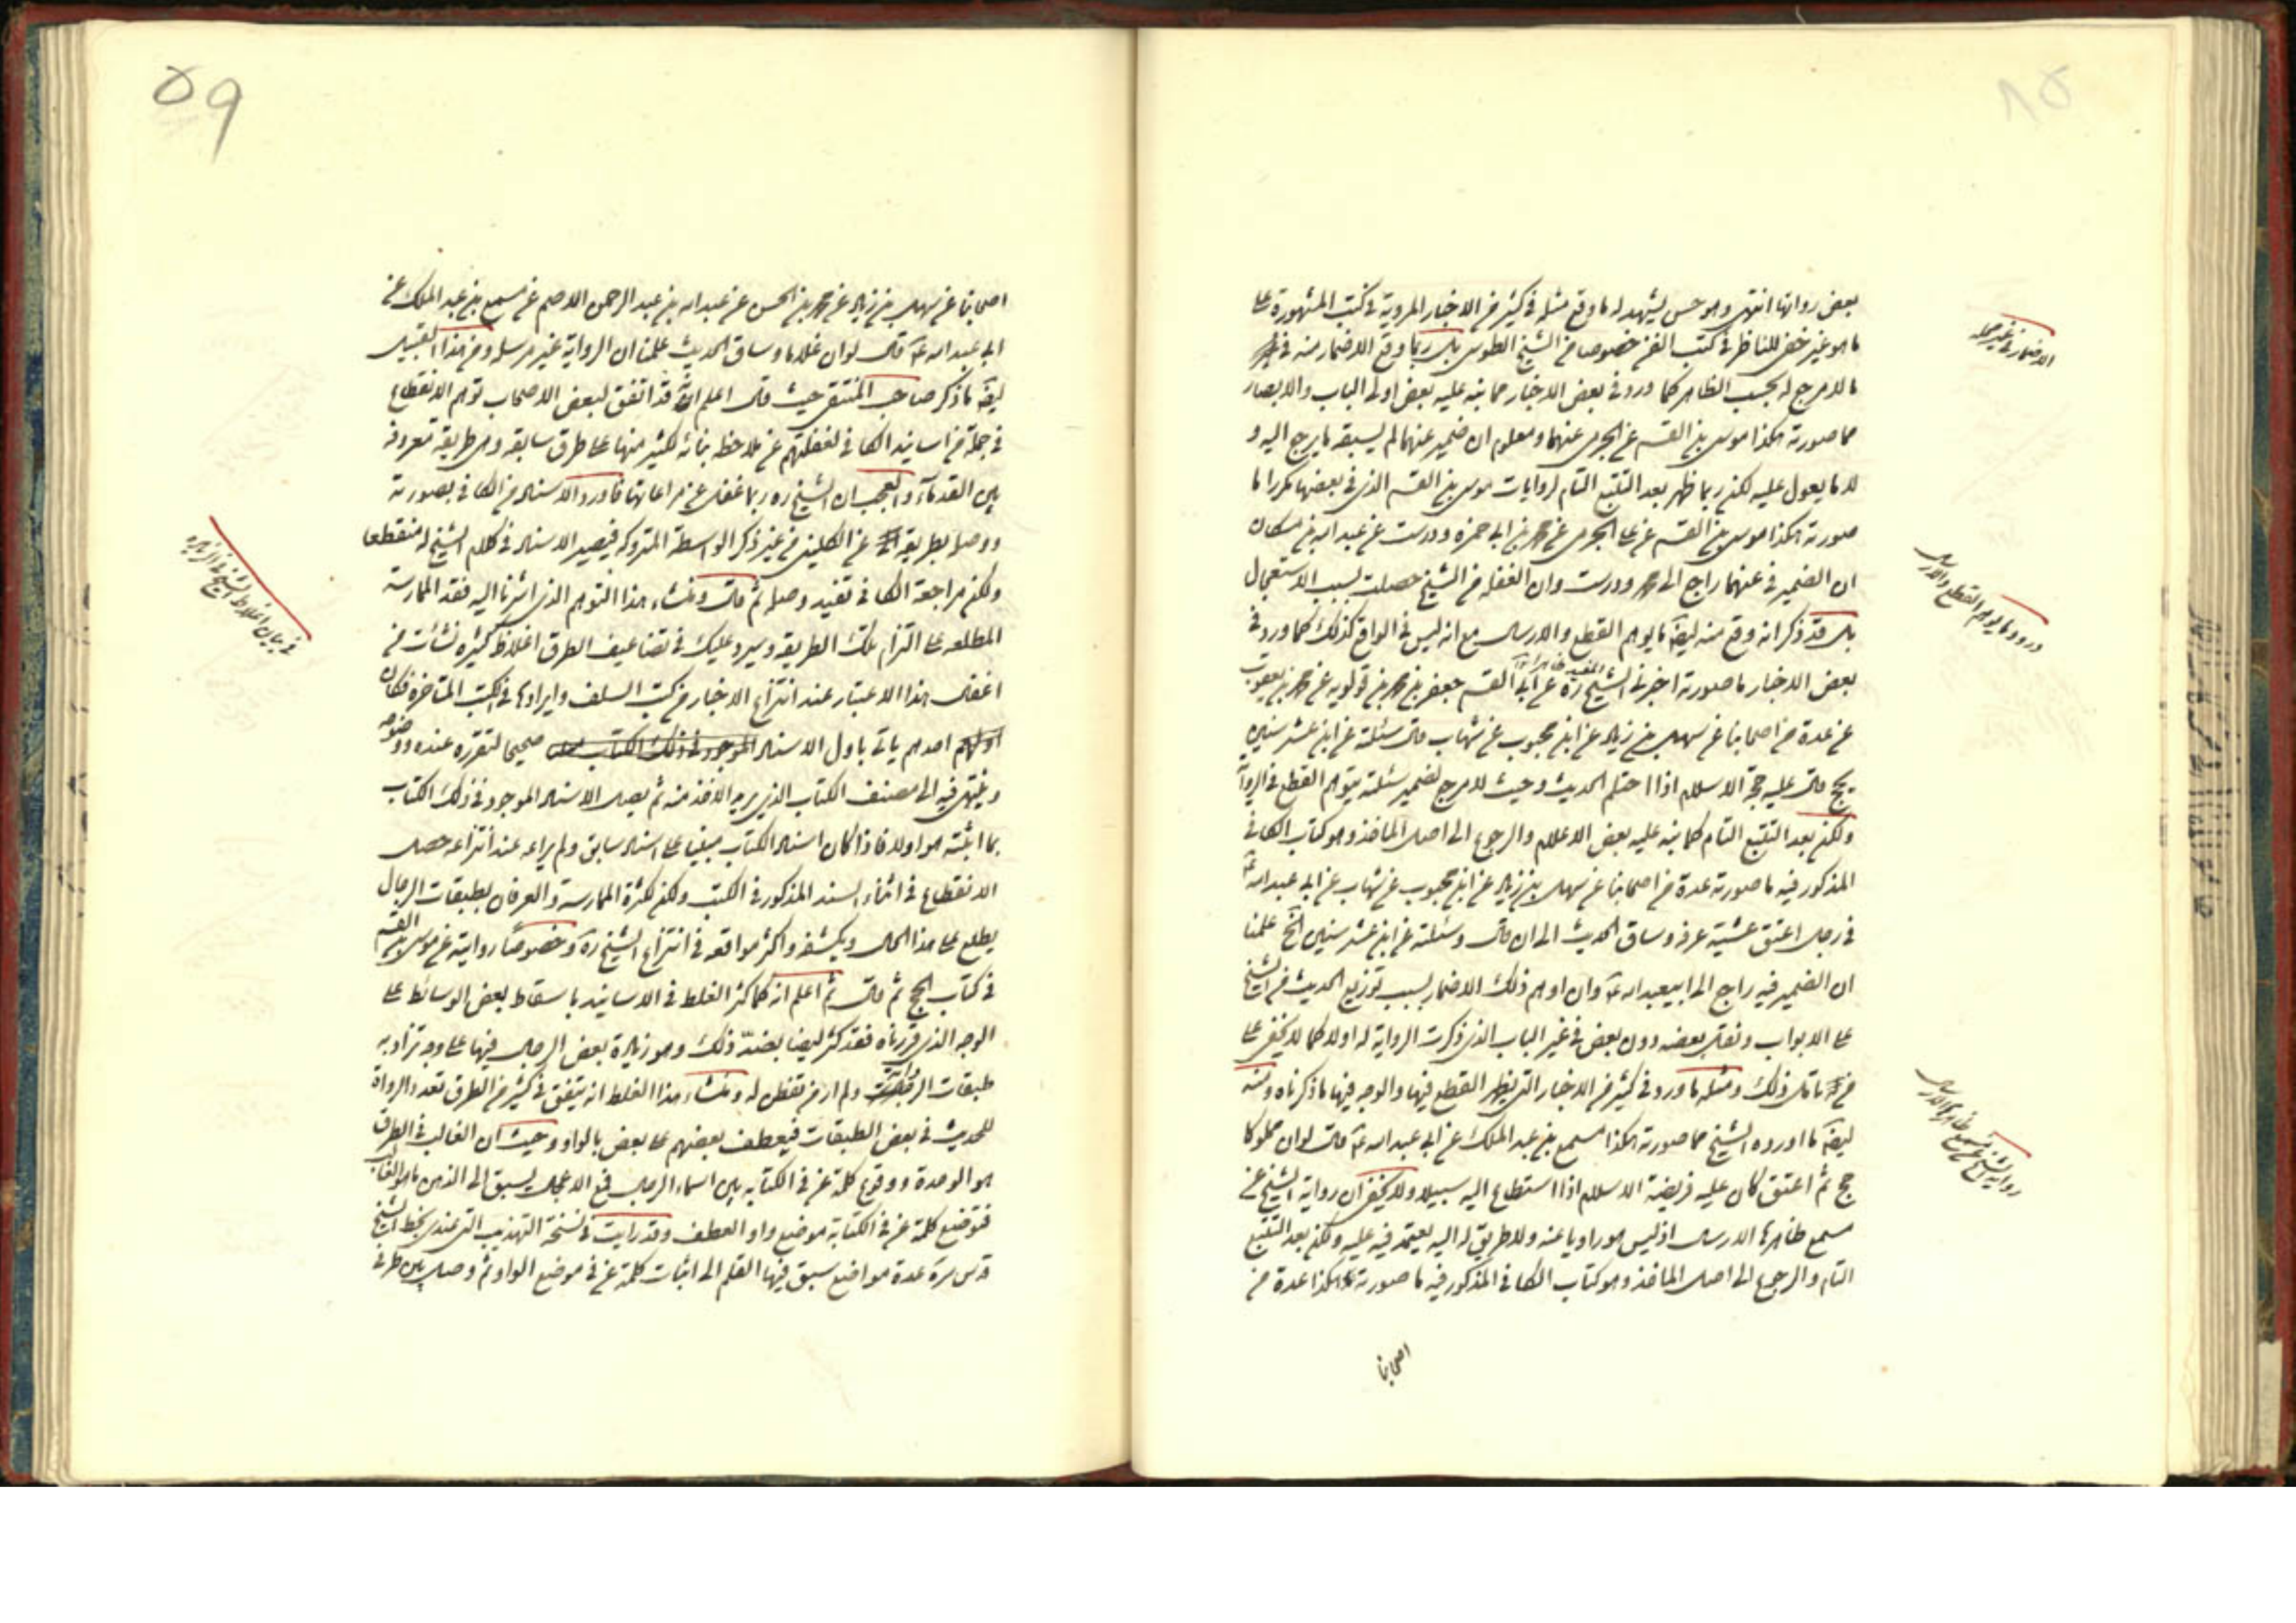 بعض رواتها انتهى وهو حسن يشهد له ما وقع مثله في كثير من الاخبار المروية في كتب المشهورة على
ما هو غير خفي للناظر في كتب الفن خصوصا من الشيخ الطوسي بل ربما وقع الاضمار منه في
ما لا مرجع له بحسب الظاهر كما ورد في بعض الاخبار مما نبه عليه بعض اولى الباب والابصار
مما صورته هكذا موسى بن القسم عن الجرمي عنهما ومعلوم ان ضمير عنهما لم يسبقه ما يرجع اليه و
لا ما يعول عليه لكن ربما ظهر بعد التتبع التام لروايات موسى بن القسم الذي في بعضها مكررا ما
صورته هكذا موسى بن القسم عن علي الجرمي عن محمد بن ابي حمزه ودرست عن عبد الله بن مسكان
ان الضمير في عنهما راجع الى محمد ودرست وان الغفله من الشيخ حصلت بسبب الاستعجال
بل قد ذكر انه وقع منه ايضا ما يوهم القطع والارسال مع انه ليس في الواقع كذلك كما ورد في
بعض الاخبار ما صورته اخبرني الشيخ المفيد ره عن ابي القسم جعفر بن محمد بن قولويه عن محمد بن يعقوب
عن عدة من اصحابنا عن سهل بن زياد عن ابن محبوب عن شهاب قال سئلته عن ابن عشر سنين
يحج قال عليه حجة الاسلام اذا احتلم الحديث وحيث لا مرجع لضمير سئلته يتوهم القطع في الرواية
ولكن بعد التتبع التام كما نبه عليه بعض الاعلام والرجوع الى اصل الماخذ وهو كتاب الكافي
المذكور فيه ما صورته عدة من اصحابنا عن سهل بن زياد عن ابن محبوب عن شهاب عن ابي عبد الله ع
في رجل اعتق عشية عرفه وساق الحديث الى ان قال وسئلته عن ابن عشر سنين الخ علمنا
ان الضمير فيه راجع الى ابيعبد الله ع وان اوهم ذلك الاضمار بسبب توزيع الحديث من الشيخ
على الابواب ونقل بعضه دون بعض في غير الباب الذي ذكرت الرواية له اولا كما لا يخفى على
من تامل ذلك ومثله ما ورد في كثير من الاخبار التي يظهر القطع فيها والوجه فيها ما ذكرناه ومنه
ايضا ما اورده الشيخ مما صورته هكذا مسمع بن عبد الملك عن ابي عبد الله ع قال لو ان مملوكا
حج ثم اعتق كان عليه فريضة الاسلام اذا استطاع اليه سبيلا ولا يخفى ان رواية الشيخ عن
مسمع ظاهرها الارسال اذ ليس هو راويا عنه ولا طريق له اليه يعتمد فيه عليه ولكن بعد التتبع
التام والرجوع الى اصل الماخذ وهو كتاب الكافي المذكور فيه ما صورته هكذا عدة من
اصحابنا
الاضمار في غير محله
ورود ما يوهم القطع والارسال
رواية الشيخ عن مسمع ظاهرها الارسال
۵۹
اصحابنا عن سهل بن زياد عن محمد بن الحسن عن عبد الله بن عبد الرحمن الاصم عن مسمع بن عبد الملك عن
ابي عبد الله ع قال لو ان غلاما وساق الحديث علمنا ان الرواية غير مرسله ومن هذا القبيل
ايضا ما ذكر صاحب المنتقى حيث قال اعلم انه قد اتفق لبعض الاصحاب توهم الانقطاع
في جملة من اسانيد الكافي لغفلتهم عن ملاحظة بنائه لكثير منها على طرق سابقه وهي طريقه معروفه
بين القدماء والعجب ان الشيخ ره ربما غفل عن مراعاتها فاورد الاسناد من الكافي بصورته
ووصله بطريقه عن الكليني من غير ذكر الواسطة المتروكه فيصير الاسناد في كلام الشيخ له منقطعا
ولكن مراجعة الكافي تفيد وصله ثم قال ومنشاء هذا التوهم الذي اشرنا اليه فقد الممارسة
المطلعه على التزام تلك الطريقه وسيرد عليك في تضاعيف الطرق اغلاط كثيره نشأت من
اغفال هذا الاعتبار عند انتزاع الاخبار من كتب السلف وايرادها في الكتب المتاخره فكان
احدهم ياتي باول الاسناد الموجود في ذلك الكتاب صحيحا لتقرره عنده ووضوحه
وينتهي فيه الى مصنف الكتاب الذي يريد الاخذ منه ثم يصل الاسناد الموجود في ذلك الكتاب
بما اثبته هو اولا فاذا كان اسناد الكتاب مبنيا على اسناد سابق ولم يراعه عند انتزاعه حصل
الانقطاع في اثناء السند المذكور في الكتب ولكن كثرة الممارسة والعرفان بطبقات الرجال
يطلع على هذا الحال ويكشفه واكثر مواقعه في انتزاع الشيخ ره وخصوصا روايته عن موسى بن القسم
في كتاب الحج ثم قال ثم اعلم انه كما كثر الغلط في الاسانيد باسقاط بعض الوسائط على
الوجه الذي قررناه فقد كثر ايضا بضد ذلك وهو زيادة بعض الرجال فيها على وجه تزاد به
طبقات الرواية ولم ار من تفطن له ومنشاء هذا الغلط انه يتفق في كثير من الطرق تعدد الرواة
للحديث في بعض الطبقات فيعطف بعضهم على بعض بالواو وحيث ان الغالب في الطرق
هو الوحدة ووقوع كلمة عن في الكتابه بين اسماء الرجال فمع الاعجال يسبق الى الذهن ما هو الغالب
فتوضع كلمة عن في الكتابة موضع واو العطف وقد رايت في نسخة التهذيب التي عندي بخط الشيخ
قدس سره عدة مواضع سبق فيها القلم الى اثبات كلمة عن في موضع الواو ثم وصل بين طرفي
في بيان اغلاط الشيخ في